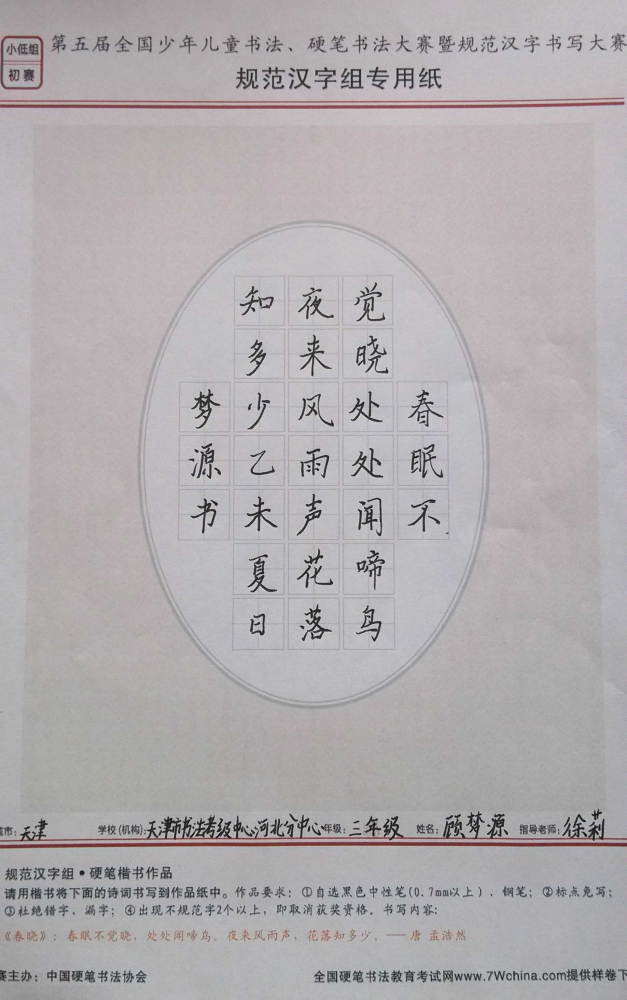 小低组
初赛
第五届全国少年儿童书法、硬笔书法大赛暨规范汉字书写大赛
规范汉字组专用纸
春眠不
觉晓处处闻啼鸟
夜来风雨声花落
知多少乙未夏日
梦源书
城市：天津 学校（机构）：天津市书法考级中心河北分中心 年级：三年级 姓名：顾梦源 指导老师：徐莉
规范汉字组•硬笔楷书作品
请用楷书将下面的诗词书写到作品纸中。作品要求：①自选黑色中性笔(0.7mm以上）、钢笔；②标点免写；
③杜绝错字、漏字；④出现不规范字2个以上，即取消获奖资格。书写内容：
《春晓》：春眠不觉晓，处处闻啼鸟。夜来风雨声，花落知多少。——唐 孟浩然
赛主办：中国硬笔书法协会 全国硬笔书法教育考试网www.7Wchina.com提供样卷下